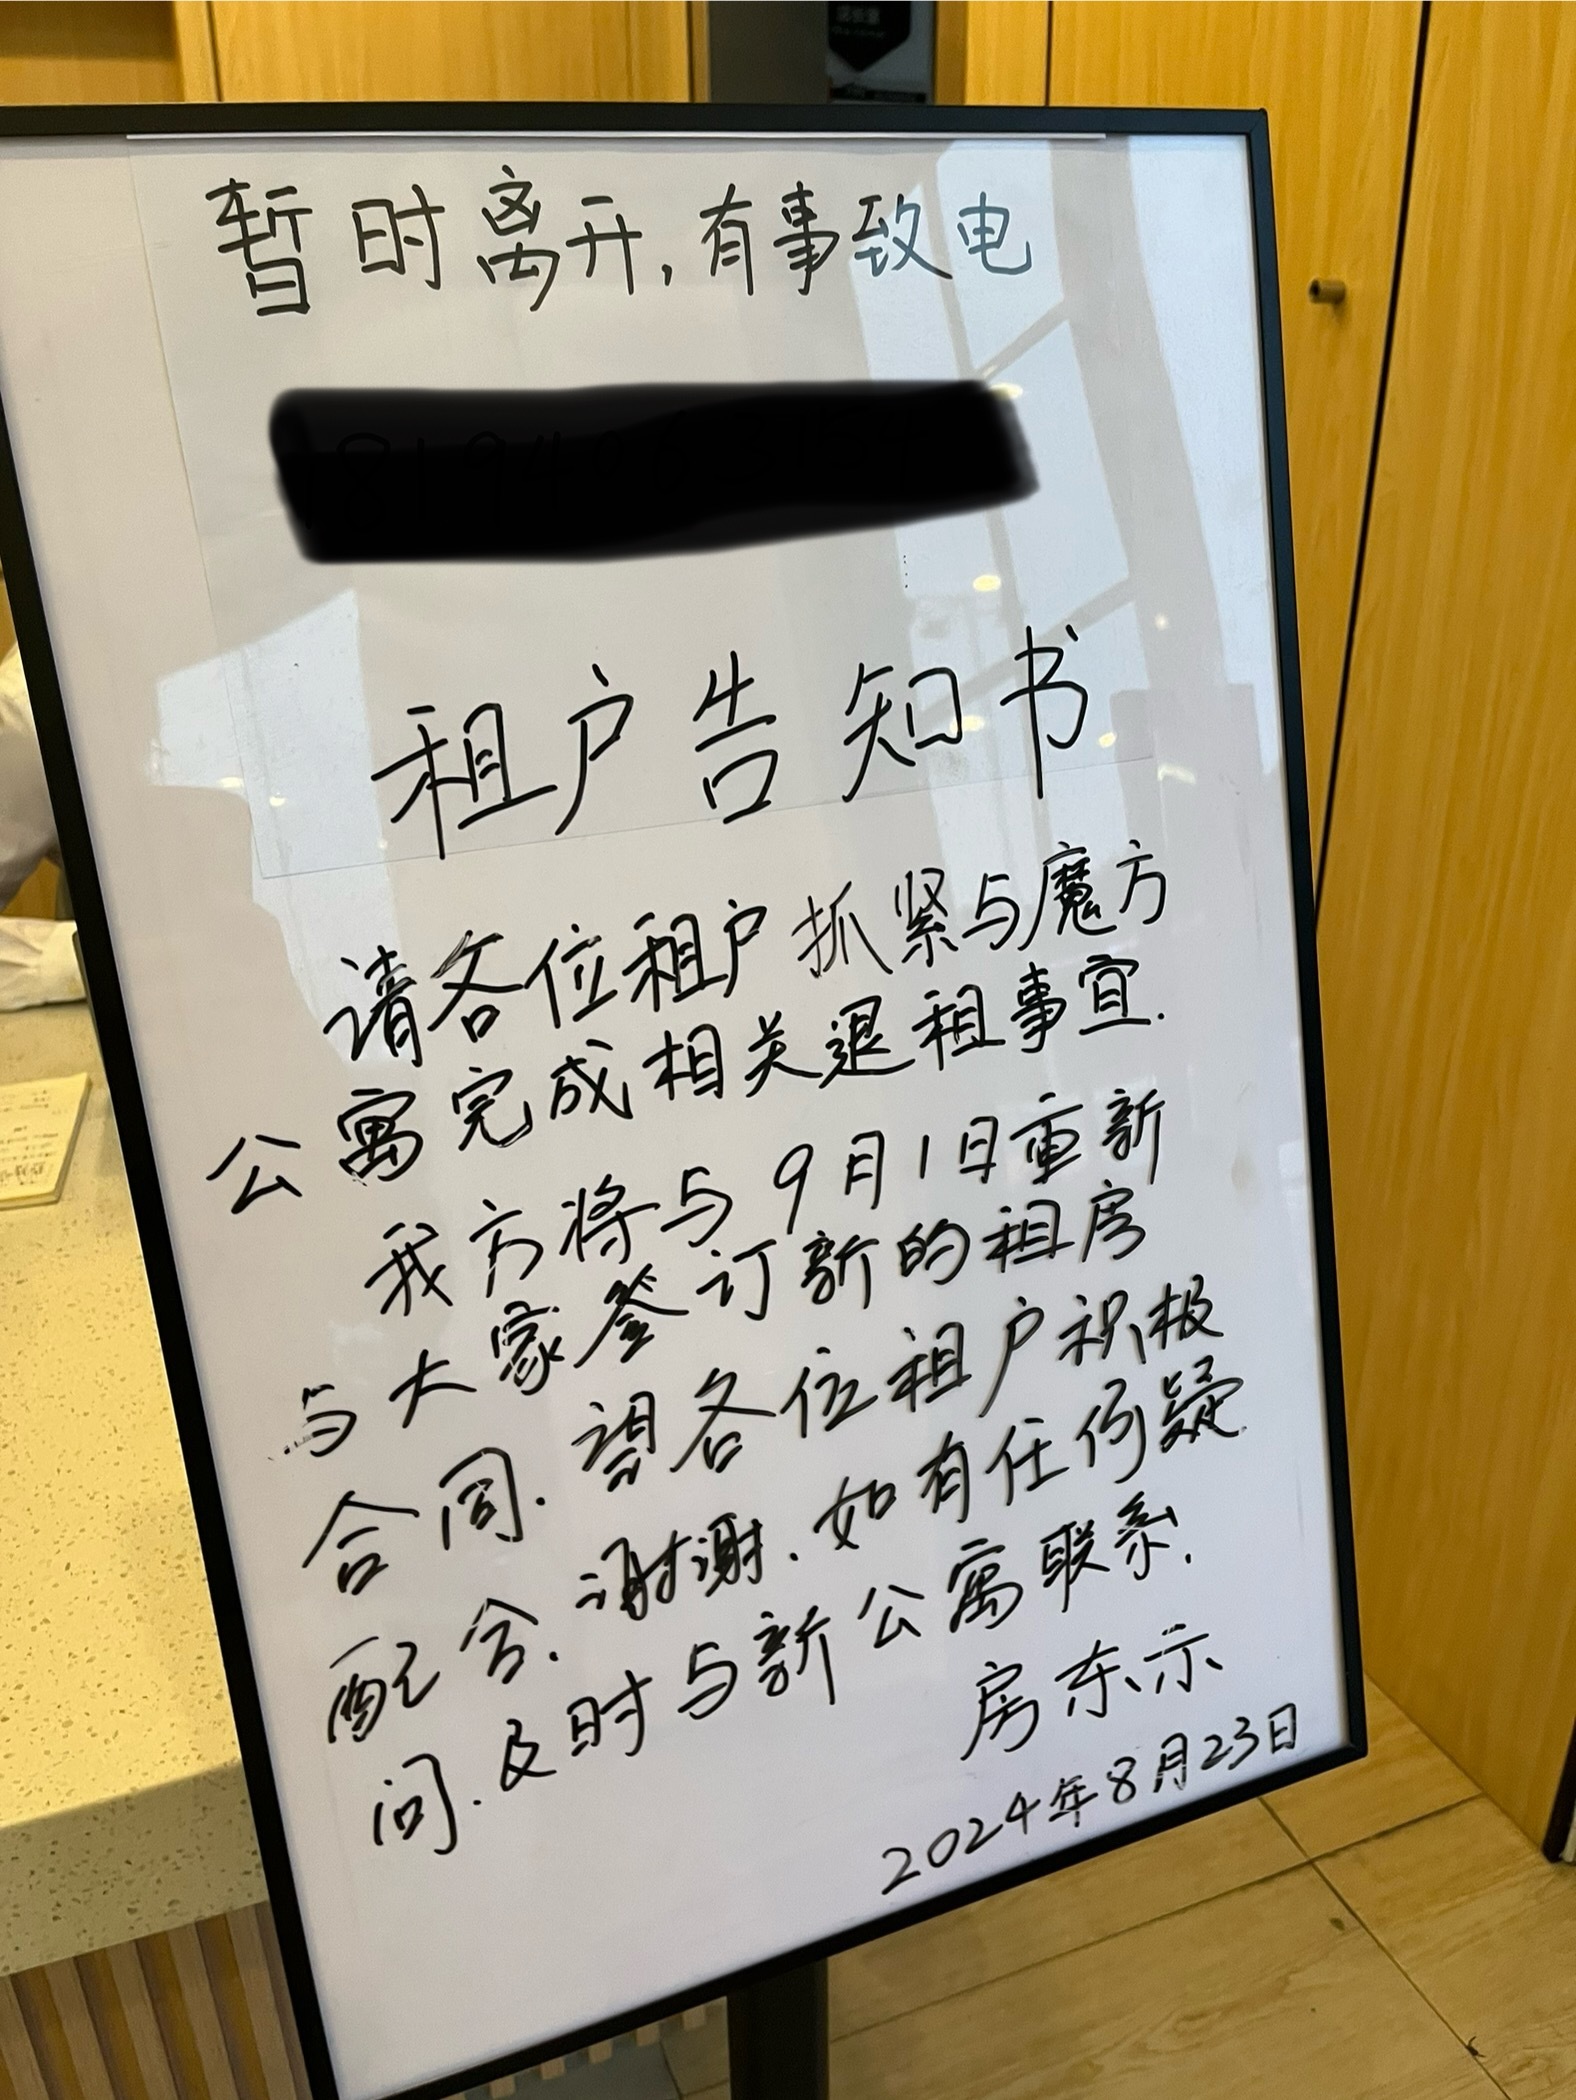 暂时离开,有事致电
租户告知书
请各位租户抓紧与魔方
公寓完成相关退租事宜.
我方将与9月1日重新
与大家签订新的租房
合同.望各位租户积极
配合.谢谢.如有任何疑
问.及时与新公寓联系.
房东示
2024年8月23日